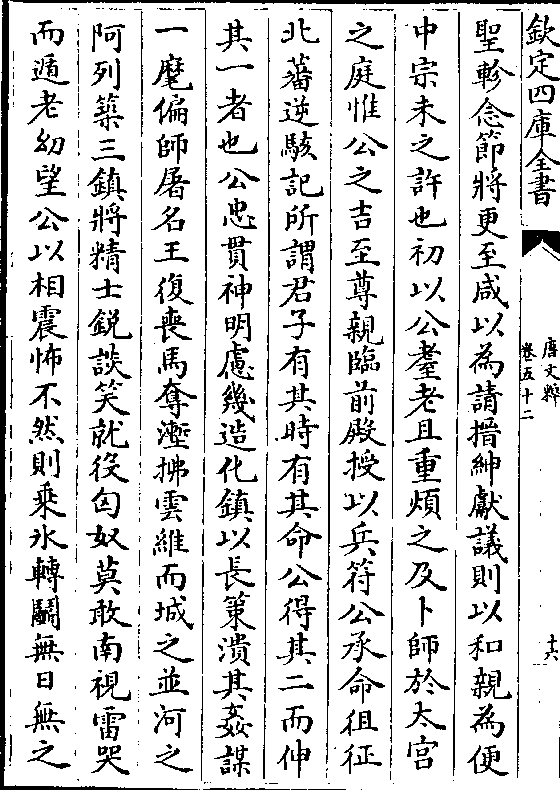 欽定四庫全書
唐文粹
卷五十二
十六
聖軫念節將更至咸以為請搢紳獻議則以和親為便
中宗未之許也初以公耋老且重煩之及卜師於太宮
之庭惟公之吉至尊親臨前殿授以兵符公承命徂征
北蕃逆駭記所謂君子有其時有其命公得其二而伸
其一者也公忠貫神明慮幾造化鎮以長策潰其姦謀
一麾偏師屠名王復喪馬奪㙷拂雲維而城之並河之
阿列築三鎮將精士銳談笑就役匈奴莫敢南視雷哭
而遁老幼望公以相震怖不然則乘氷轉鬬無日無之